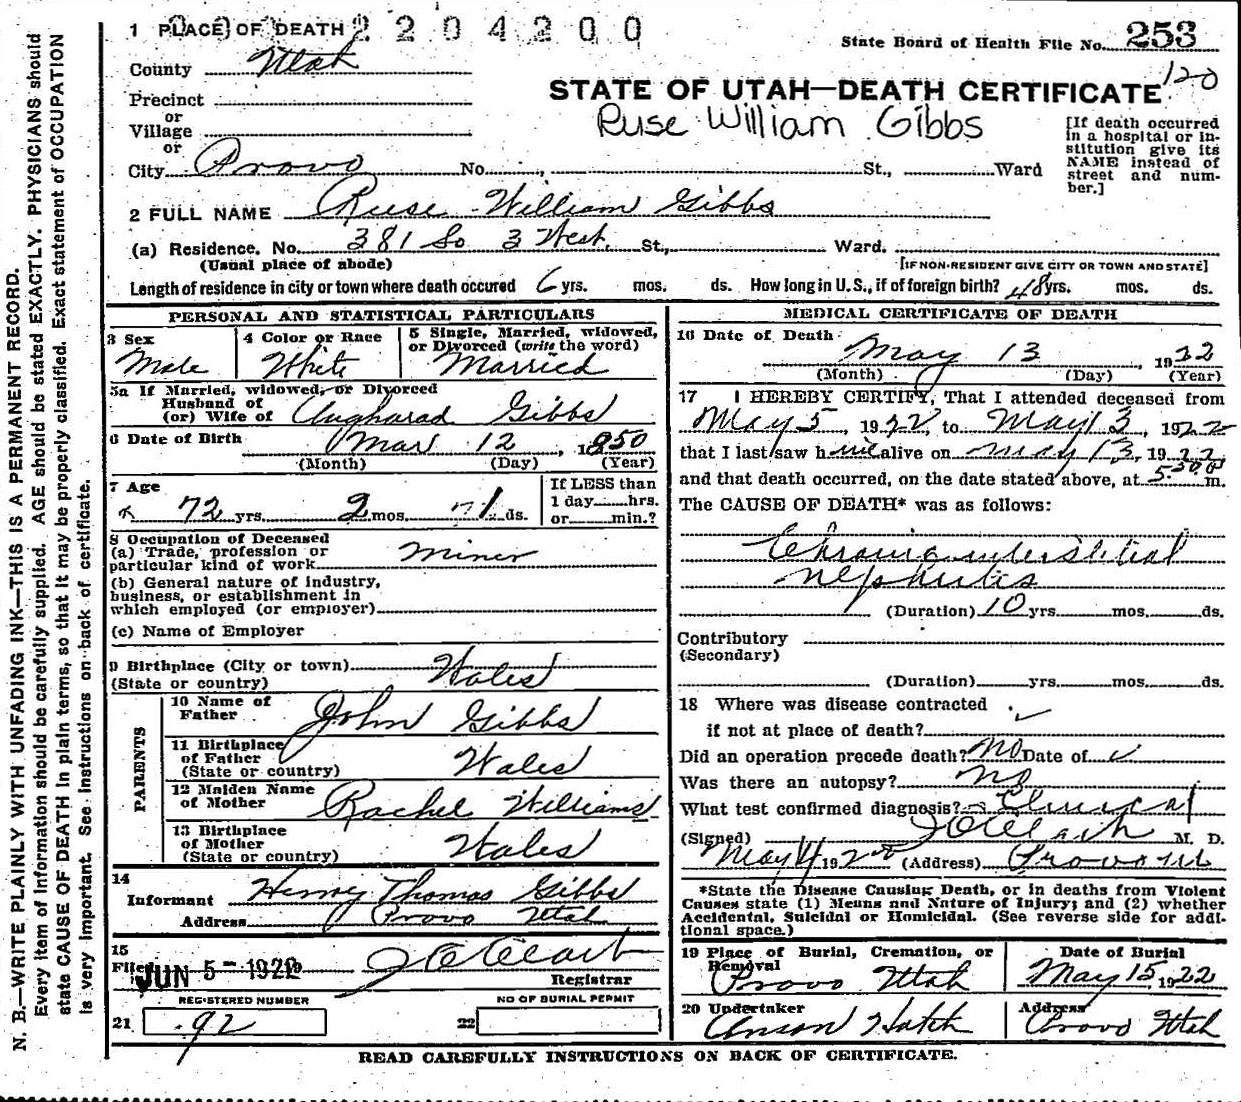 1 PLACE OF DEATH 2204200
State Board of Health File No. 253
County Utah
120
Precinct
STATE OF UTAH—DEATH CERTIFICATE
or
Village
Ruse William Gibbs
[If death occurred in a hospital or institution give its NAME instead of street and number.]
or
City Provo No. St., Ward
2 FULL NAME Ruse William Gibbs
(a) Residence. No. 381 So 3 West. St., Ward.
(Usual place of abode) [IF NON-RESIDENT GIVE CITY OR TOWN AND STATE]
Length of residence in city or town where death occured 6 yrs. mos. ds. How long in U.S., if of foreign birth? 48 yrs. mos. ds.
PERSONAL AND STATISTICAL PARTICULARS
3 Sex Male
4 Color or Race White
5 Single, Married, widowed, or Divorced (write the word) Married
5a If Married, widowed, or Divorced
Husband of
(or) Wife of Angharad Gibbs
6 Date of Birth Mar 12, 1850
(Month) (Day) (Year)
7 Age
72 yrs. 2 mos. 1 ds.
If LESS than
1 day hrs.
or min.?
8 Occupation of Deceased
(a) Trade, profession or
particular kind of work Miner
(b) General nature of industry,
business, or establishment in
which employed (or employer)
(c) Name of Employer
9 Birthplace (City or town) Wales
(State or country)
PARENTS
10 Name of
Father John Gibbs
11 Birthplace
of Father
(State or country) Wales
12 Maiden Name
of Mother Rachel Williams
13 Birthplace
of Mother
(State or country) Wales
14
Informant Henry Thomas Gibbs
Address Provo Utah
15
Filed JUN 5-1922
Registrar
REGISTERED NUMBER
21 92
NO OF BURIAL PERMIT
22
MEDICAL CERTIFICATE OF DEATH
16 Date of Death
May 13, 1922
(Month) (Day) (Year)
17 I HEREBY CERTIFY, That I attended deceased from
May 5, 1922, to May 13, 1922
that I last saw him alive on May 13, 1922
and that death occurred, on the date stated above, at 5:30 P m.
The CAUSE OF DEATH* was as follows:
Chronic interstitial
nephritis
(Duration) 10 yrs. mos. ds.
Contributory
(Secondary)
(Duration) yrs. mos. ds.
18 Where was disease contracted
if not at place of death?
Did an operation precede death? No Date of
Was there an autopsy? No
What test confirmed diagnosis? Clinical
(Signed) M. D.
May 192 (Address) Provo
*State the Disease Causing Death, or in deaths from Violent
Causes state (1) Means and Nature of Injury; and (2) whether
Accidental, Suicidal or Homicidal. (See reverse side for additional space.)
19 Place of Burial, Cremation, or
Removal
Provo Utah
Date of Burial
May 15, 1922
20 Undertaker
Anson Hatch
Address
Provo Utah
READ CAREFULLY INSTRUCTIONS ON BACK OF CERTIFICATE.
N. B.—WRITE PLAINLY WITH UNFADING INK—THIS IS A PERMANENT RECORD.
Every item of information should be carefully supplied. AGE should be stated EXACTLY. PHYSICIANS should
state CAUSE OF DEATH in plain terms, so that it may be properly classified. Exact statement of OCCUPATION
is very important. See instructions on back of certificate.